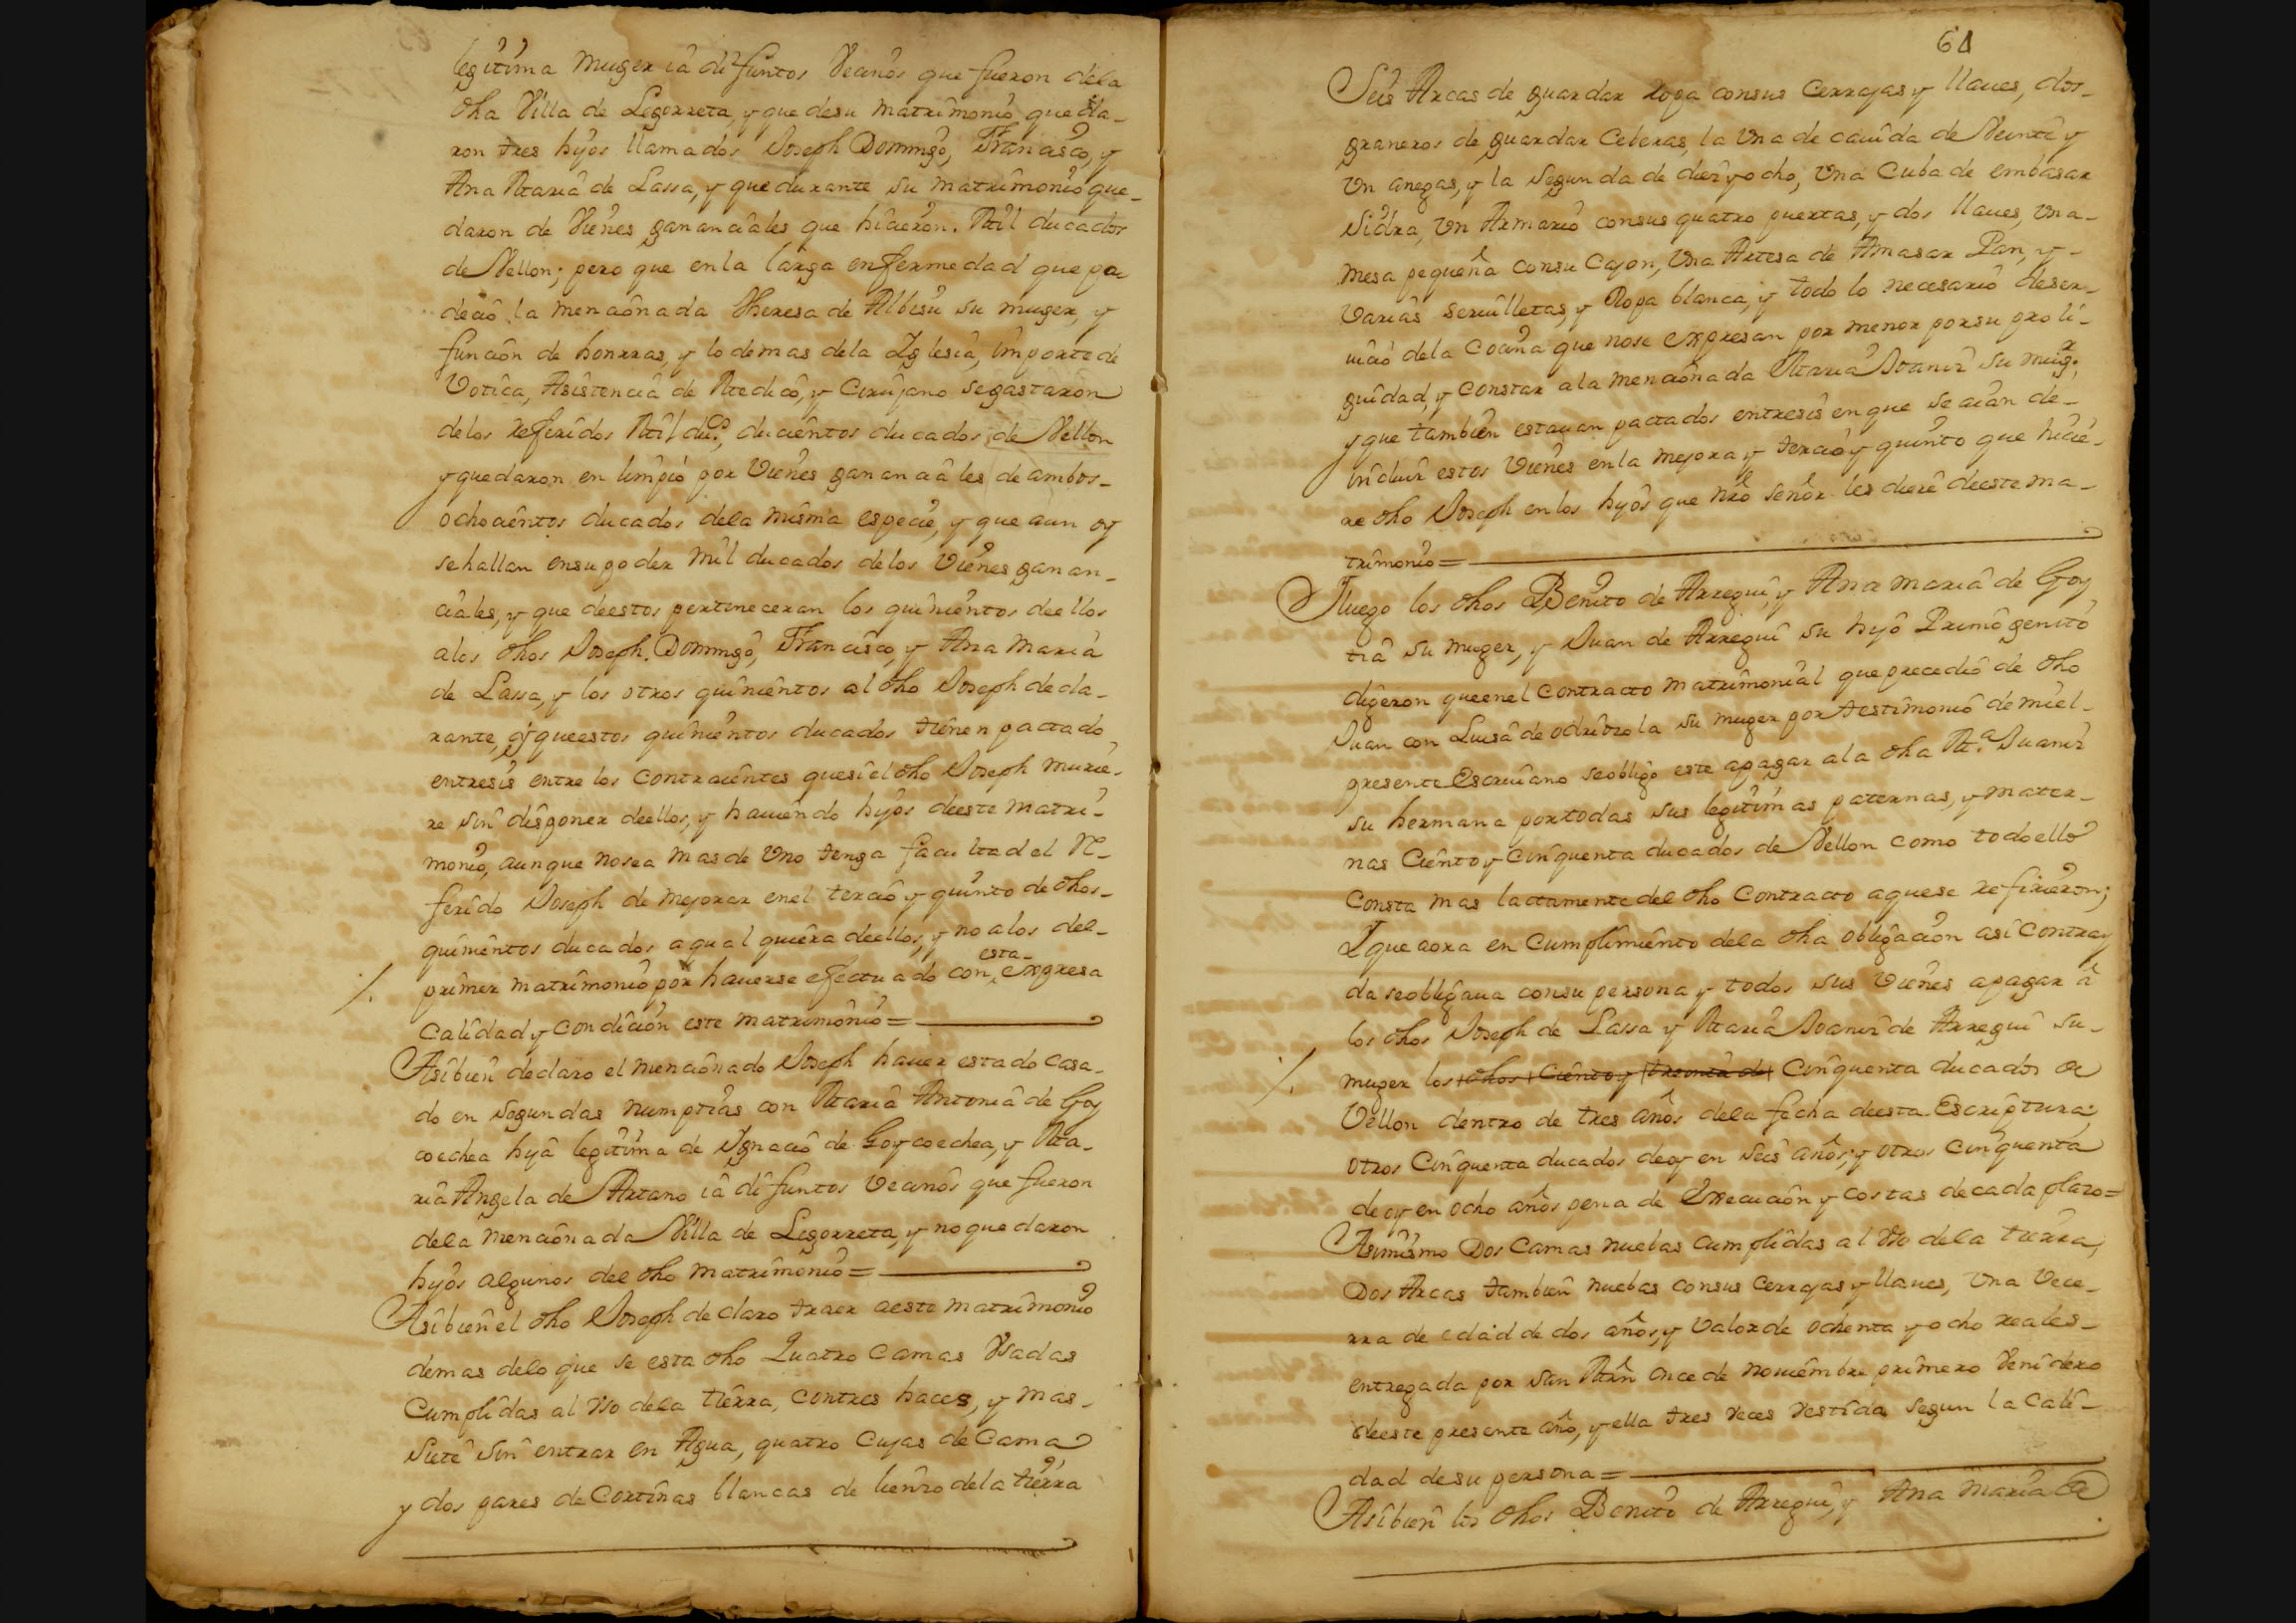 legitima muger ia difuntos Vecinos que fueron dela
dha Villa de Legorreta, y que de su matrimonio queda-
ron tres hijos llamados Joseph Domingo, Francisco, y
Ana Maria de Lassa, y que durante su matrimonio que-
daron de Vienes gananciales que hicieron. Mil ducados
de Vellon; pero que en la larga enfermedad que pa-
decio la mencionada Theresa de Albisu su muger, y
funcion de honrras, y lo demas dela Iglesia, importe de
Votica, Asistencia de Medico, y Cirujano se gastaron
delos referidos Mil ducs, ducientos ducados de Vellon
y quedaron en limpio por Vienes gananciales de ambos-
ochocientos ducados dela misma especie, y que aun oy
se hallan en su poder mil ducados delos Vienes ganan-
ciales, y que de estos perteneceran los quinientos de ellos
alos dhos Joseph Domingo, Francisco, y Ana Maria
de Lassa, y los otros quinientos al dho Joseph decla-
rante, y que estos quinientos ducados tienen pactado
entresis entre los contraientes que si el dho Joseph murie-
re sin disponer de ellos, y haviendo hijos de este matri-
monio, aunque no sea mas de Uno tenga facultad el Re-
ferido Joseph de mejorar en el tercio y quinto de dhos-
quinientos ducados a qual quiera de ellos, y no alos del-
esta-
primer matrimonio por haverse efectuado con, expresa
Calidad y condicion este matrimonio=
Asibien declaro el mencionado Joseph haver estado casa-
do en segundas numptias con Maria Antonia de Goy
coechea hija legitima de Ignacio de Goycoechea, y Ma-
ria Angela de Artano ia difuntos vecinos que fueron
dela mencionada Villa de Legorreta, y no quedaron
hijos algunos del dho matrimonio=
Asibien el dho Joseph declaro traer a este matrimonio
demas delo que se esta dho Quatro camas Usadas
Cumplidas al Uso dela tierra, con tres haces, y mas-
Siete sin entrar en Agua, quatro Cujas de Cama
y dos pares de Cortinas blancas de lienzo dela tierra
61
Seis Arcas de guardar Ropa con sus Cerrajas y llaves, dos-
graneros de guardar Ceberas, la Una de cavida de Veinte y
Un anegas, y la Segunda de diez y ocho, Una Cuba de embasar
Sidra, Un Armario con sus quatro puertas, y dos llaves, Una-
mesa pequeña con su Cajon, Una Artesa de Amasar Pan, y-
Varias Servilletas, y Ropa blanca, y todo lo necesario de ser-
vicio dela Cocina que no se expresan por menor por su proli-
guidad, y constar ala mencionada Maria Joaniz su mugr,
y que tambien estavan pactados entresis en que se aian de-
incluir estos Vienes en la mejora y tercio y quinto que hicie-
re dho Joseph en los hijos que nro señor les diere de este ma-
trimonio=
I luego los dhos Benito de Arregui, y Ana Maria de Goy
tia su muger, y Juan de Arregui su hijo Primogenito
digeron que en el contracto matrimonial que precedio de dho
Juan con Luisa de odritzola su muger por testimonio de mi el-
presente Escrivano se obligo este a pagar ala dha Ma. Juaniz
su hermana por todas sus legitimas paternas, y mater-
nas Ciento y cinquenta ducados de Vellon como todo ello
Consta mas lactamente del dho Contracto a que se refirieron;
I que aora en cumplimiento dela dha obligacion asi contray
da se obligava con su persona y todos sus Vienes a pagar a
los dhos Joseph de Lassa y Maria Joaniz de Arregui su-
muger los dhos Ciento y treinta du Cinquenta ducados de
Vellon dentro de tres años dela fecha de esta Escriptura;
otros Cinquenta ducados de oy en Seis años; y otros cinquenta
de oy en ocho años pena de Execucion y costas de cada plazo=
Asimismo Dos Camas nuebas cumplidas al Uso dela tierra;
Dos Arcas tambien nuebas con sus Cerrajas y llaves, Una Vece-
rra de edad de dos años, y Valor de ochenta y ocho reales-
entregada por San Mrn once de noviembre primero Venidero
de este presente año, y ella tres veces Vestida segun la Cali-
dad de su persona=
Asibien los dhos Benito de Arregui, y Ana Maria de